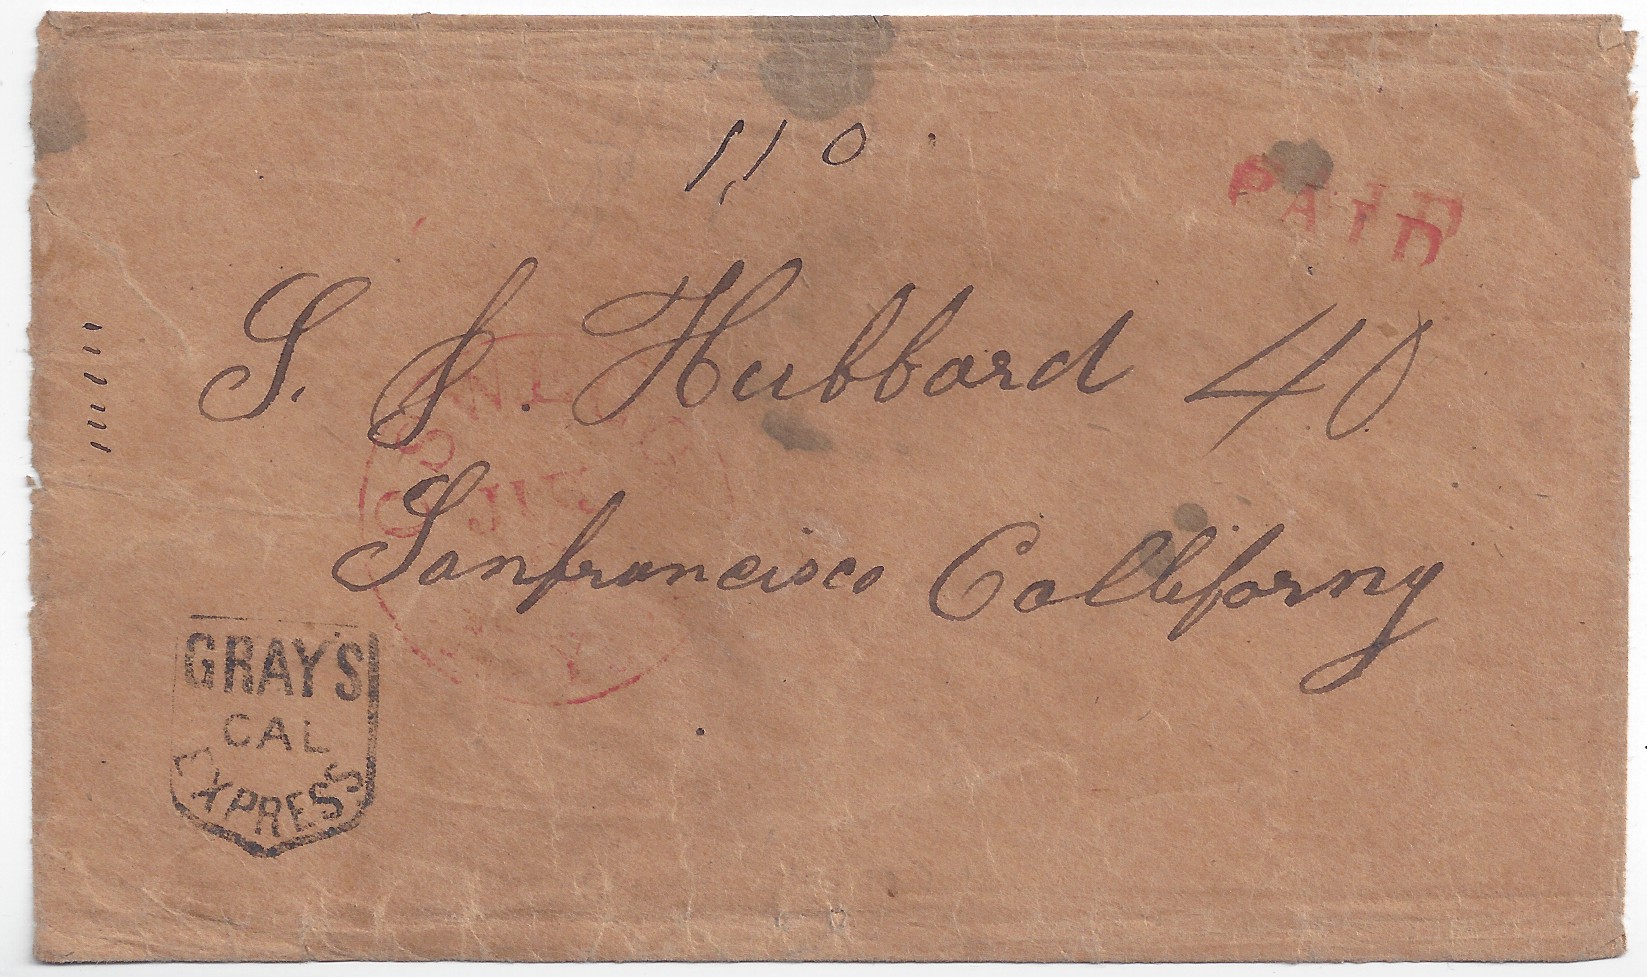 110
PAID
S. S. Hubbard 40
Sanfrancisco Calliforny
JUL
GRAY'S
CAL
EXPRESS